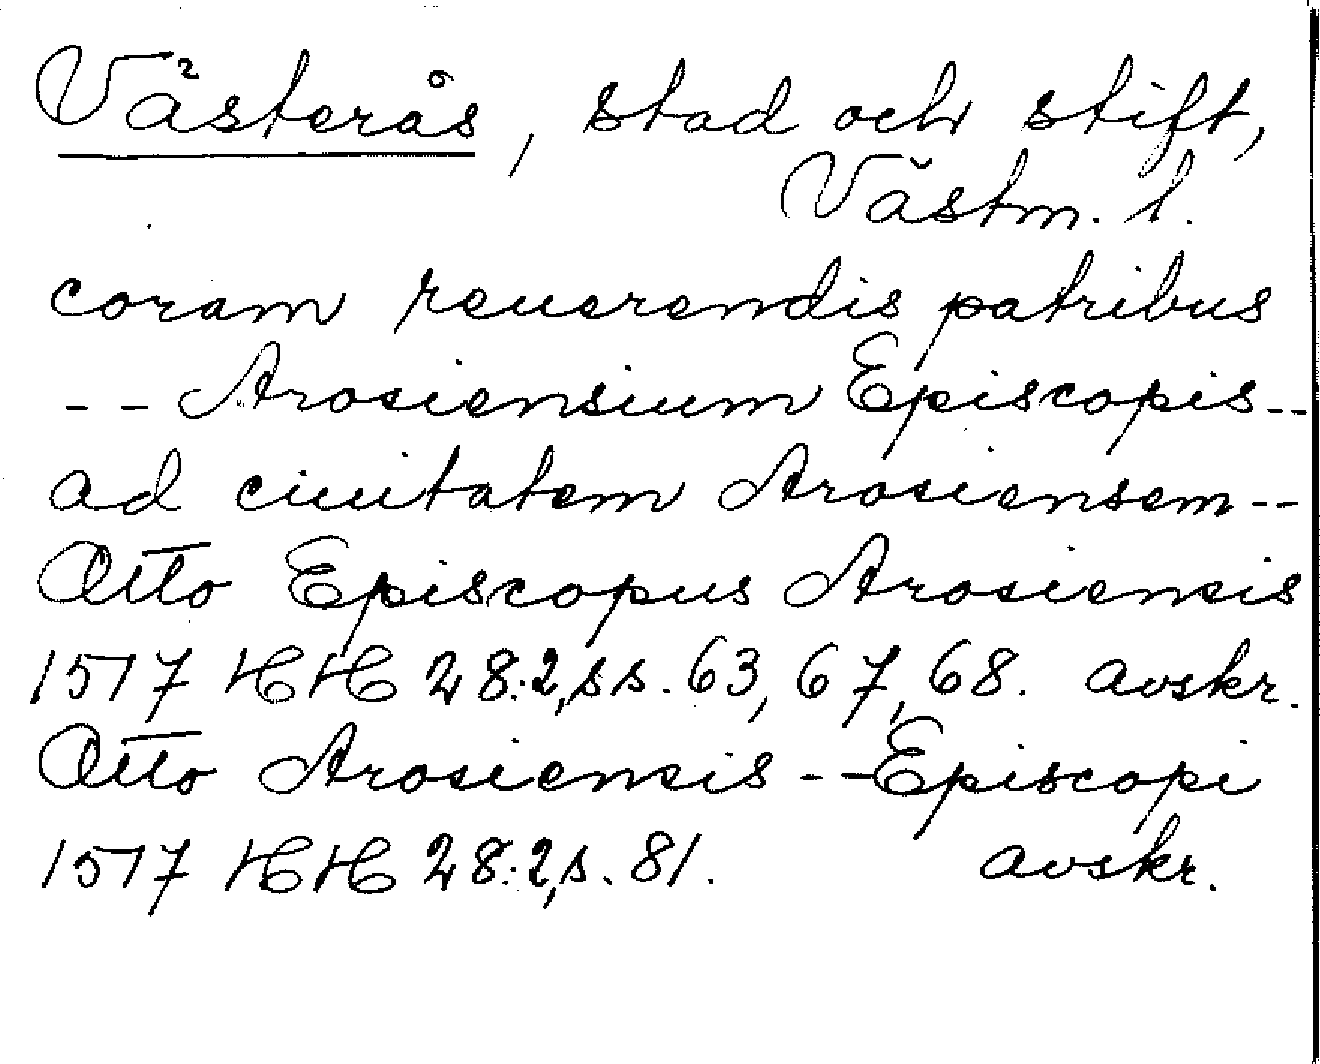 Västerås, stad och stift,
Västm. l.
coram reuerendis patribus
-- Arosiensium Episcopis --
ad ciuitatem Arosiensem --
Otto Episcopus Arosiensis
1517 HH 28:2, ss. 63, 67, 68. avskr.
Otto Arosiensis -- Episcopi
1517 HH 28:2, s. 81. avskr.